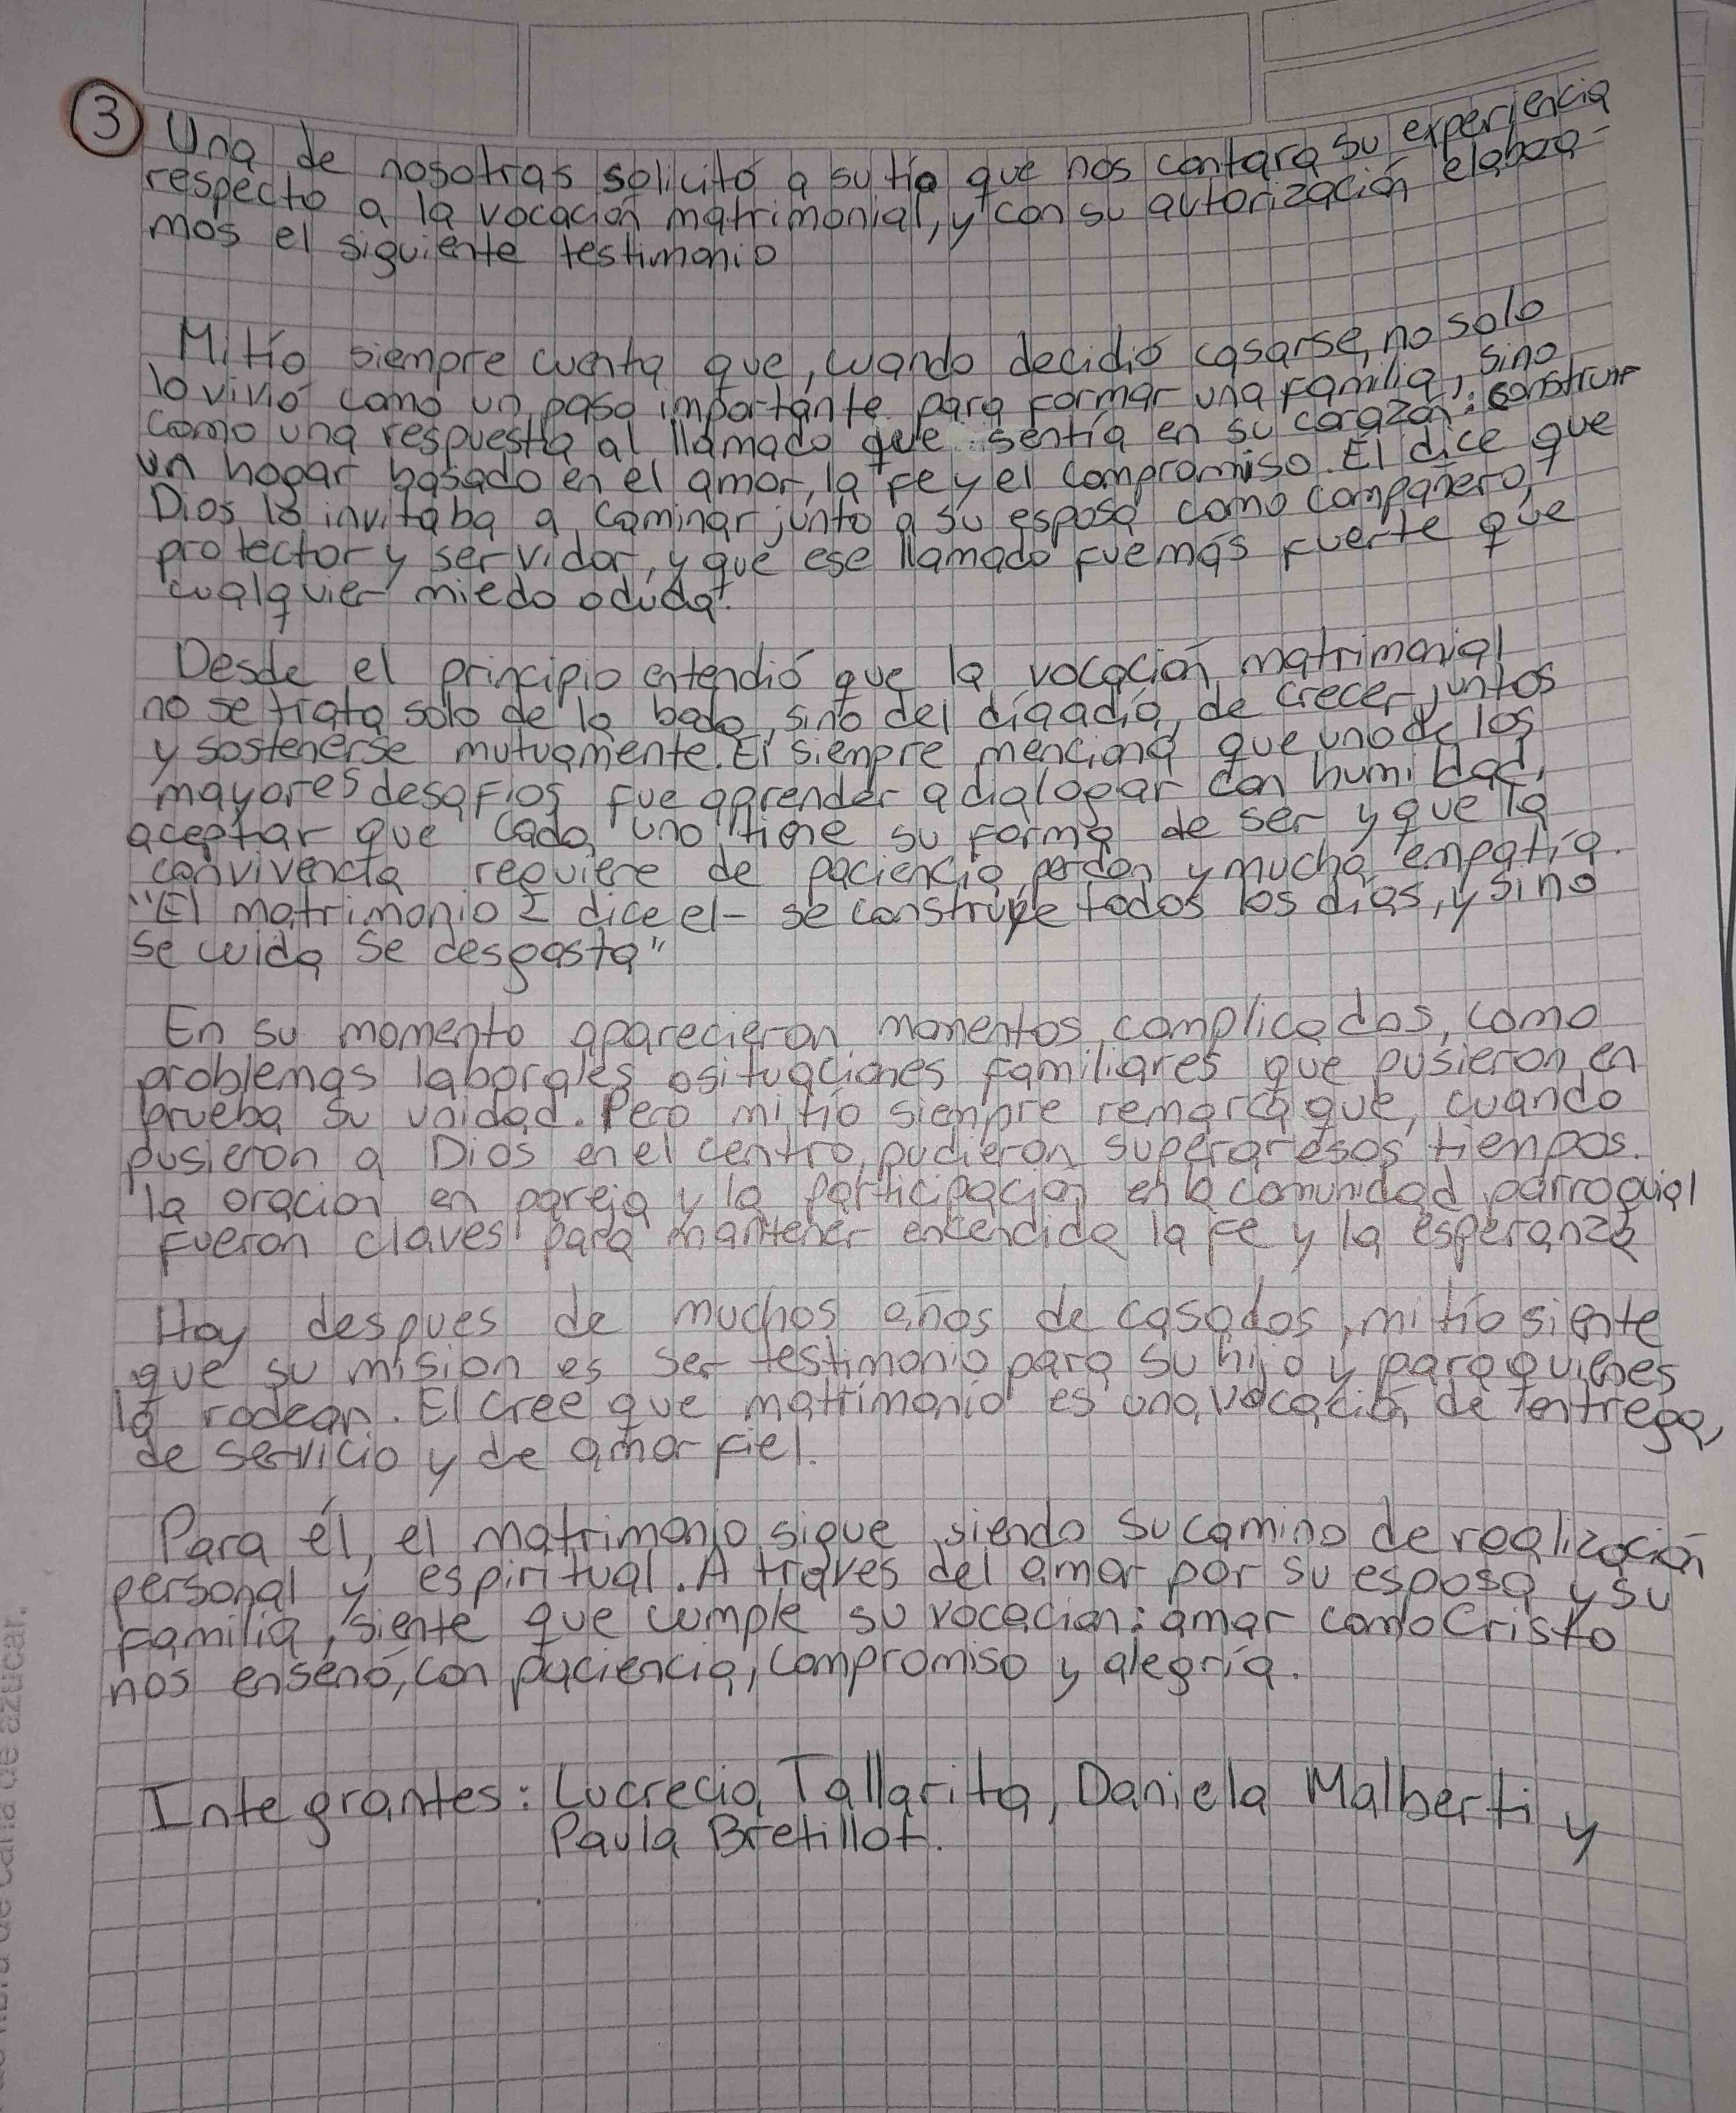 ③ Una de nosotras solicitó a su tío que nos contara su experiencia
respecto a la vocación matrimonial, y con su autorización elabora-
mos el siguiente testimonio
Mi tío siempre cuenta que, cuando decidió casarse, no solo
lo vivió como un paso importante para formar una familia, sino
como una respuesta al llamado que sentía en su corazón: construir
un hogar basado en el amor, la fe y el compromiso. Él dice que
Dios lo invitaba a caminar junto a su esposa como compañero,
protector y servidor, y que ese llamado fue más fuerte que
cualquier miedo o duda.
Desde el principio entendió que la vocación matrimonial
no se trata solo de la boda, sino del día a día, de crecer juntos
y sostenerse mutuamente. Él siempre menciona que uno de los
mayores desafíos fue aprender a dialogar con humildad,
aceptar que cada uno tiene su forma de ser y que la
convivencia requiere de paciencia, perdón y mucha empatía.
"El matrimonio - dice el - se construye todos los días, y si no
se cuida se desgasta"
En su momento aparecieron momentos complicados, como
problemas laborales o situaciones familiares que pusieron en
prueba su unidad. Pero mi tío siempre remarca que, cuando
pusieron a Dios en el centro, pudieron superar esos tiempos.
la oracion en pareja y la participación en la comunidad parroquial
fueron claves para mantener encendida la fe y la esperanza
Hoy despues de muchos años de casados, mi tío siente
que su mision es ser testimonio para su hijo y para quienes
lo rodean. El cree que matrimonio es una vocación de entrega,
de servicio y de amor fiel.
Para él, el matrimonio sigue siendo su camino de realización
personal y espiritual. A traves del amor por su esposa y su
familia, siente que cumple su vocacion: amar como Cristo
nos enseñó, con paciencia, compromiso y alegría.
Integrantes: Lucrecia Tallarita, Daniela Malberti y
Paula Bretillot.
de caña de azúcar.